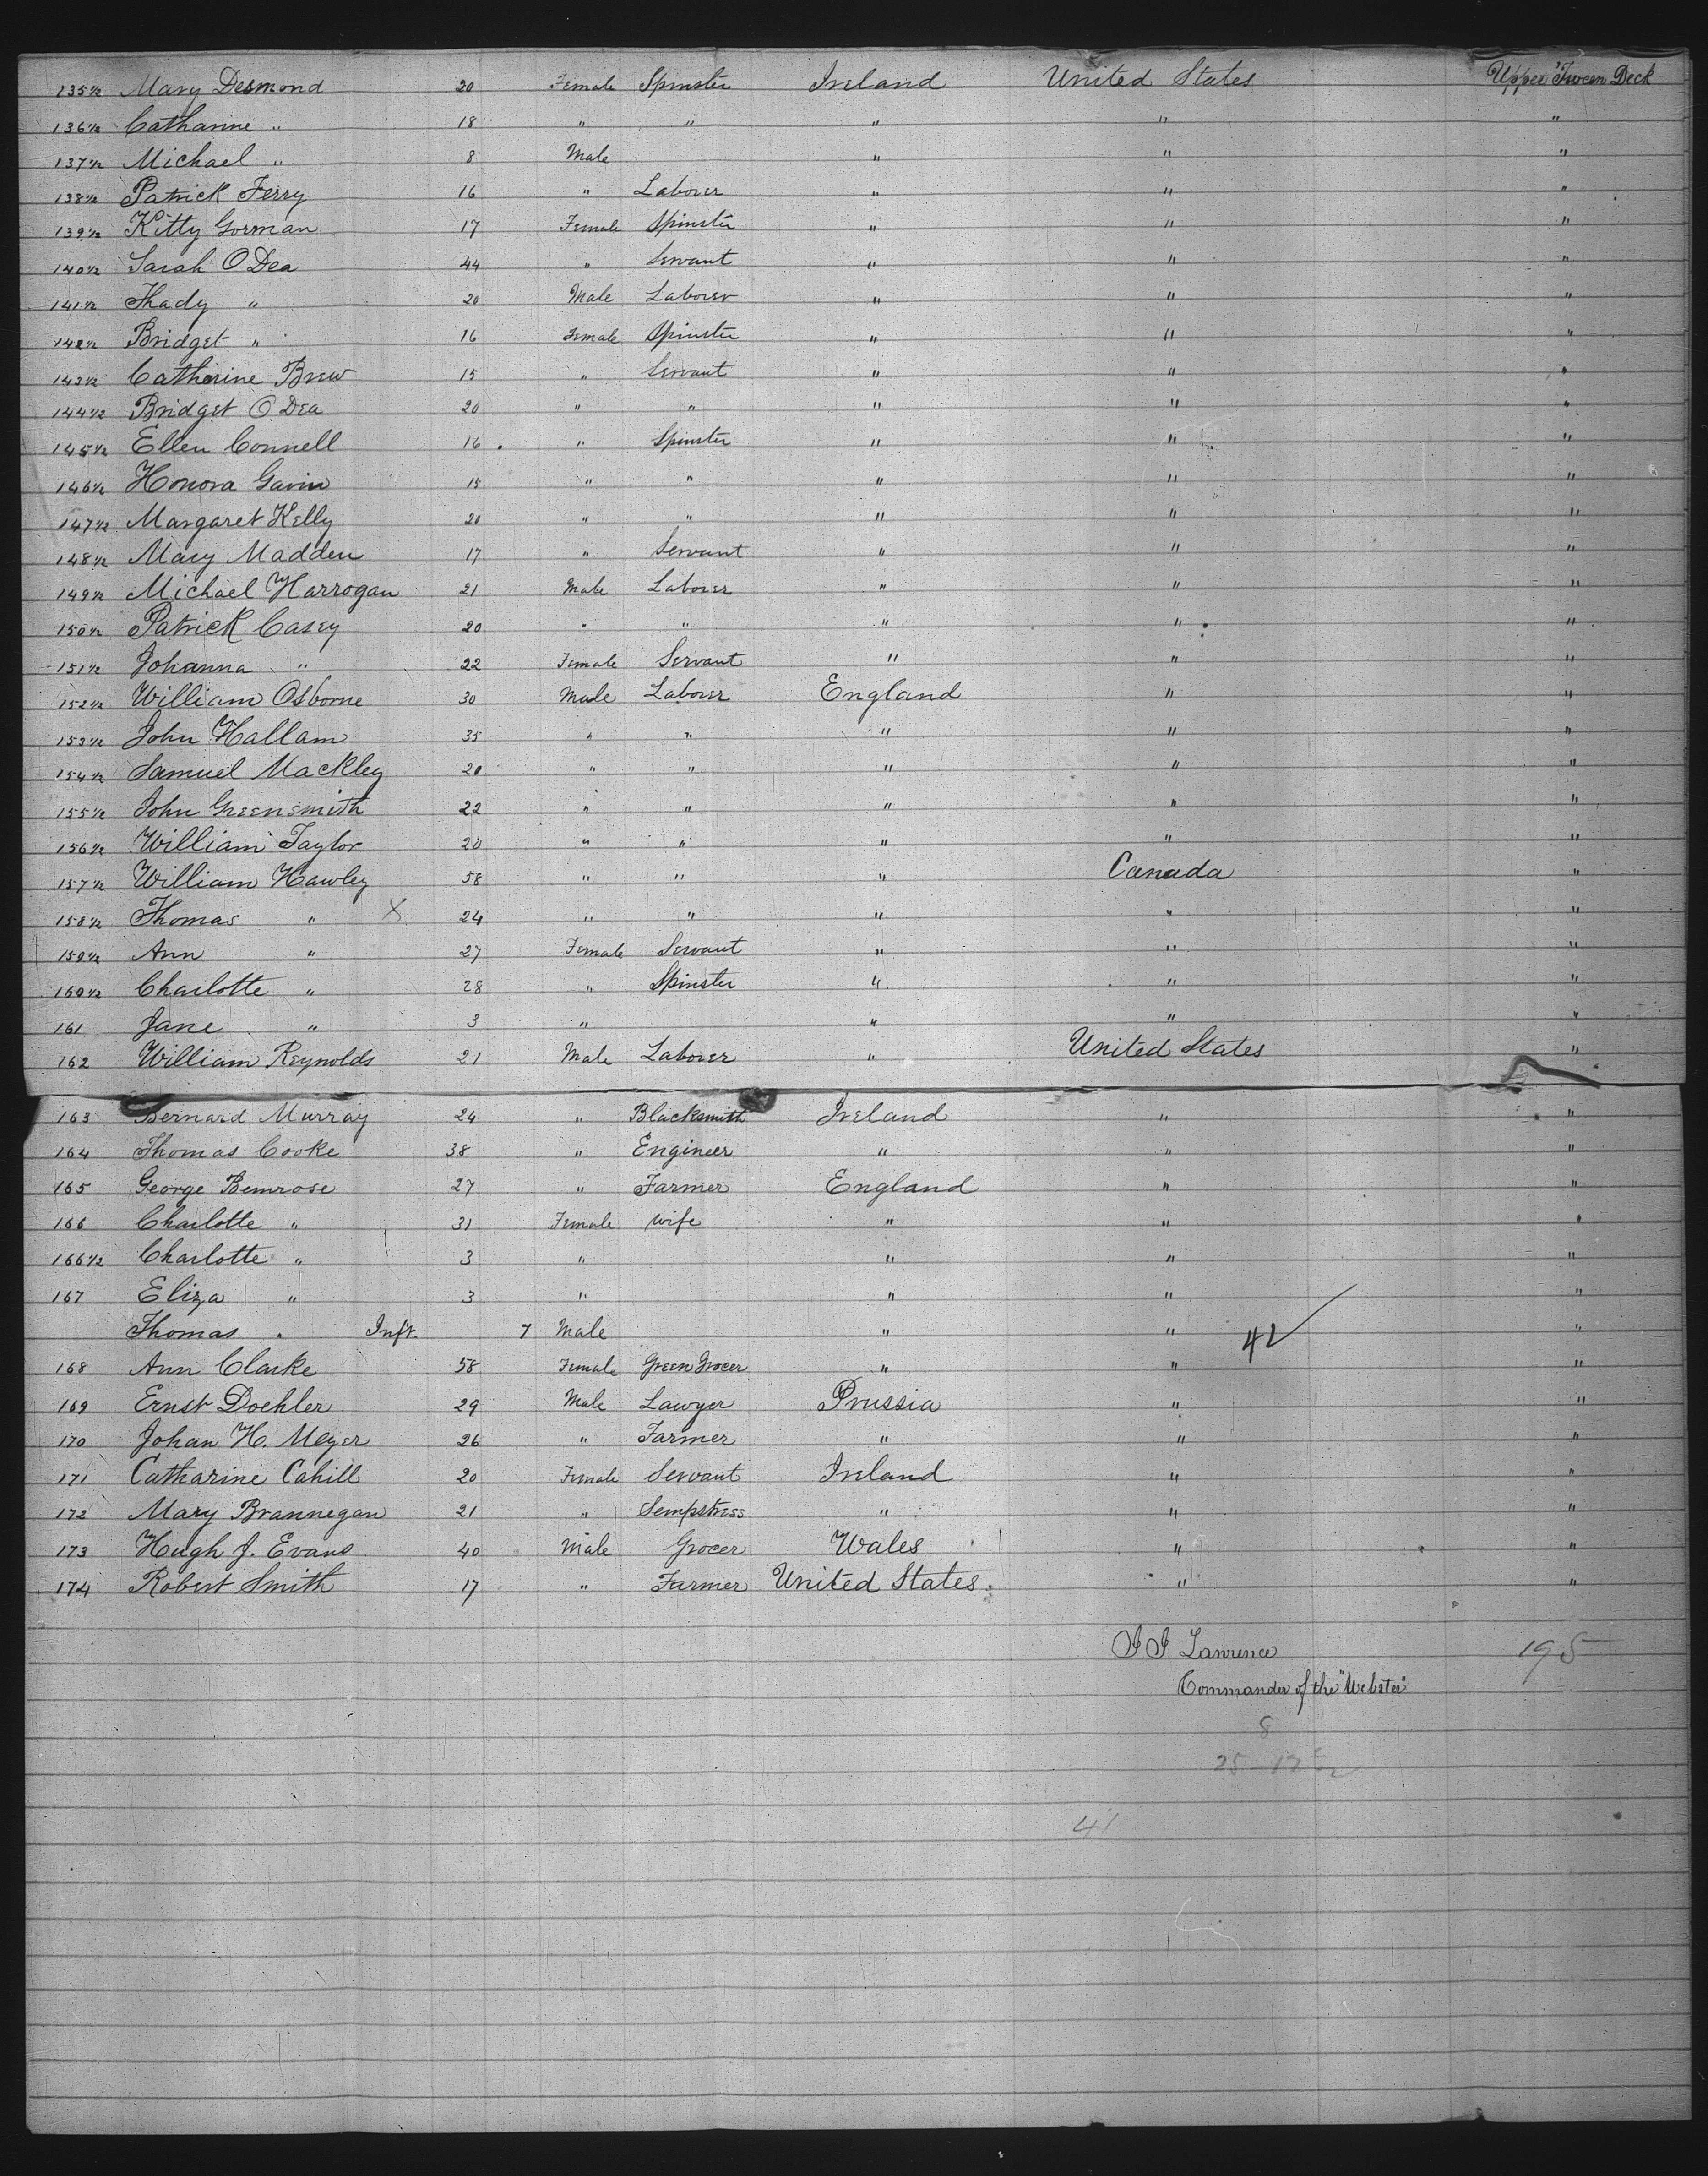 135½ Mary Desmond 20 Female Spinster Ireland United States Upper 'Tween Deck
136½ Catharine " 18 " " " " "
137½ Michael " 8 Male " " "
138½ Patrick Ferry 16 " Laborer " " "
139½ Kitty Gorman 17 Female Spinster " " "
140½ Sarah O Dea 44 " Servant " " "
141½ Thady " 20 Male Laborer " " "
142½ Bridget " 16 Female Spinster " " "
143½ Catherine Brew 15 " Servant " " "
144½ Bridget O Dea 20 " " " " "
145½ Ellen Connell 16 " Spinster " " "
146½ Honora Gavin 15 " " " " "
147½ Margaret Kelly 20 " " " " "
148½ Mary Madden 17 " Servant " " "
149½ Michael Harrogan 21 Male Laborer " " "
150½ Patrick Casey 20 " " " " "
151½ Johanna " 22 Female Servant " " "
152½ William Osborne 30 Male Laborer England " "
153½ John Hallam 35 " " " " "
154½ Samuel Mackley 20 " " " " "
155½ John Greensmith 22 " " " " "
156½ William Taylor 20 " " " " "
157½ William Hawley 58 " " " Canada "
158½ Thomas " X 24 " " " " "
159½ Ann " 27 Female Servant " " "
160½ Charlotte " 28 " Spinster " " "
161 Jane " 3 " " " "
162 William Reynolds 21 Male Laborer " United States "
163 Bernard Murray 24 " Blacksmith Ireland " "
164 Thomas Cooke 38 " Engineer " " "
165 George Bemrose 27 " Farmer England " "
166 Charlotte " 31 Female wife " " "
166½ Charlotte " 3 " " " "
167 Eliza " 3 " " " "
Thomas " Inft. 7 Male " " 42 "
168 Ann Clarke 58 Female Green Grocer " " "
169 Ernst Doehler 29 Male Lawyer Prussia " "
170 Johan H. Meyer 26 " Farmer " " "
171 Catharine Cahill 20 Female Servant Ireland " "
172 Mary Brannegan 21 " Sempstress " " "
173 Hugh J. Evans 40 Male Grocer Wales " "
174 Robert Smith 17 " Farmer United States " "
J J Lawrence 195
Commander of the "Webster"
8
41